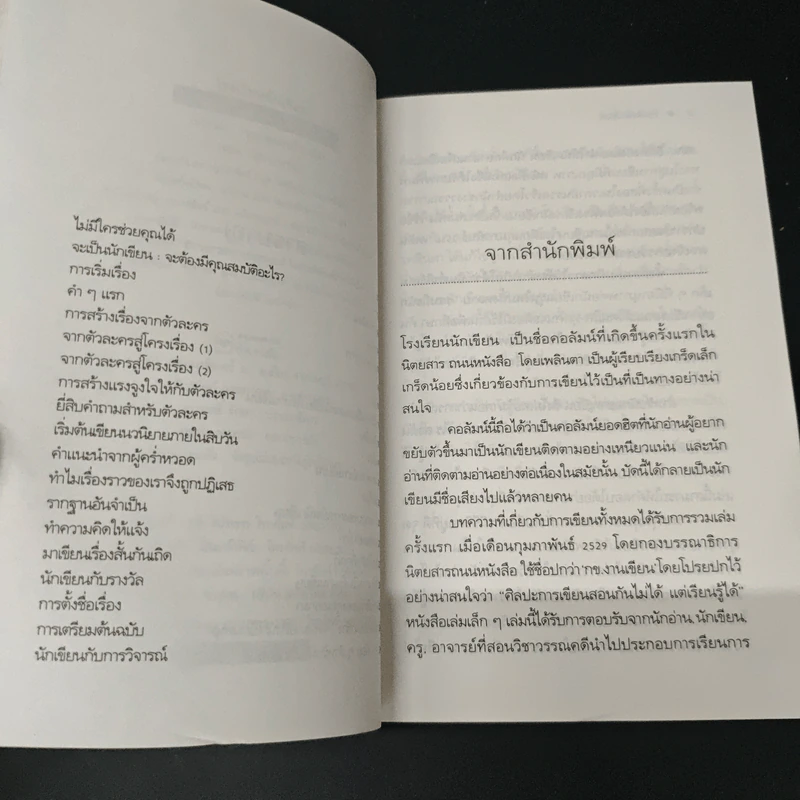 ไม่มีใครช่วยคุณได้
จะเป็นนักเขียน : จะต้องมีคุณสมบัติอะไร?
การเริ่มเรื่อง
คำ ๆ แรก
การสร้างเรื่องจากตัวละคร
จากตัวละครสู่โครงเรื่อง (1)
จากตัวละครสู่โครงเรื่อง (2)
การสร้างแรงจูงใจให้กับตัวละคร
ยี่สิบคำถามสำหรับตัวละคร
เริ่มต้นเขียนนวนิยายภายในสิบวัน
คำแนะนำจากผู้คร่ำหวอด
ทำไมเรื่องราวของเราจึงถูกปฏิเสธ
รากฐานอันจำเป็น
ทำความคิดให้แจ้ง
มาเขียนเรื่องสั้นกันเถิด
นักเขียนกับรางวัล
การตั้งชื่อเรื่อง
การเตรียมต้นฉบับ
นักเขียนกับการวิจารณ์
จากสำนักพิมพ์
โรงเรียนนักเขียน เป็นชื่อคอลัมน์ที่เกิดขึ้นครั้งแรกใน
นิตยสาร ถนนหนังสือ โดยเพลินตา เป็นผู้เรียบเรียงเกร็ดเล็ก
เกร็ดน้อยซึ่งเกี่ยวข้องกับการเขียนไว้เป็นที่เป็นทางอย่างน่า
สนใจ
คอลัมน์นี้ถือได้ว่าเป็นคอลัมน์ยอดฮิตที่นักอ่านผู้อยาก
ขยับตัวขึ้นมาเป็นนักเขียนติดตามอย่างเหนียวแน่น และนัก
อ่านที่ติดตามอ่านอย่างต่อเนื่องในสมัยนั้น บัดนี้ได้กลายเป็นนัก
เขียนมีชื่อเสียงไปแล้วหลายคน
บทความที่เกี่ยวกับการเขียนทั้งหมดได้รับการรวมเล่ม
ครั้งแรก เมื่อเดือนกุมภาพันธ์ 2529 โดยกองบรรณาธิการ
นิตยสารถนนหนังสือ ใช้ชื่อปกว่า'กข.งานเขียน'โดยโปรยปกไว้
อย่างน่าสนใจว่า "ศิลปะการเขียนสอนกันไม่ได้ แต่เรียนรู้ได้"
หนังสือเล่มเล็ก ๆ เล่มนี้ได้รับการตอบรับจากนักอ่าน, นักเขียน,
ครู, อาจารย์ที่สอนวิชาวรรณคดีนำไปประกอบการเรียนการ